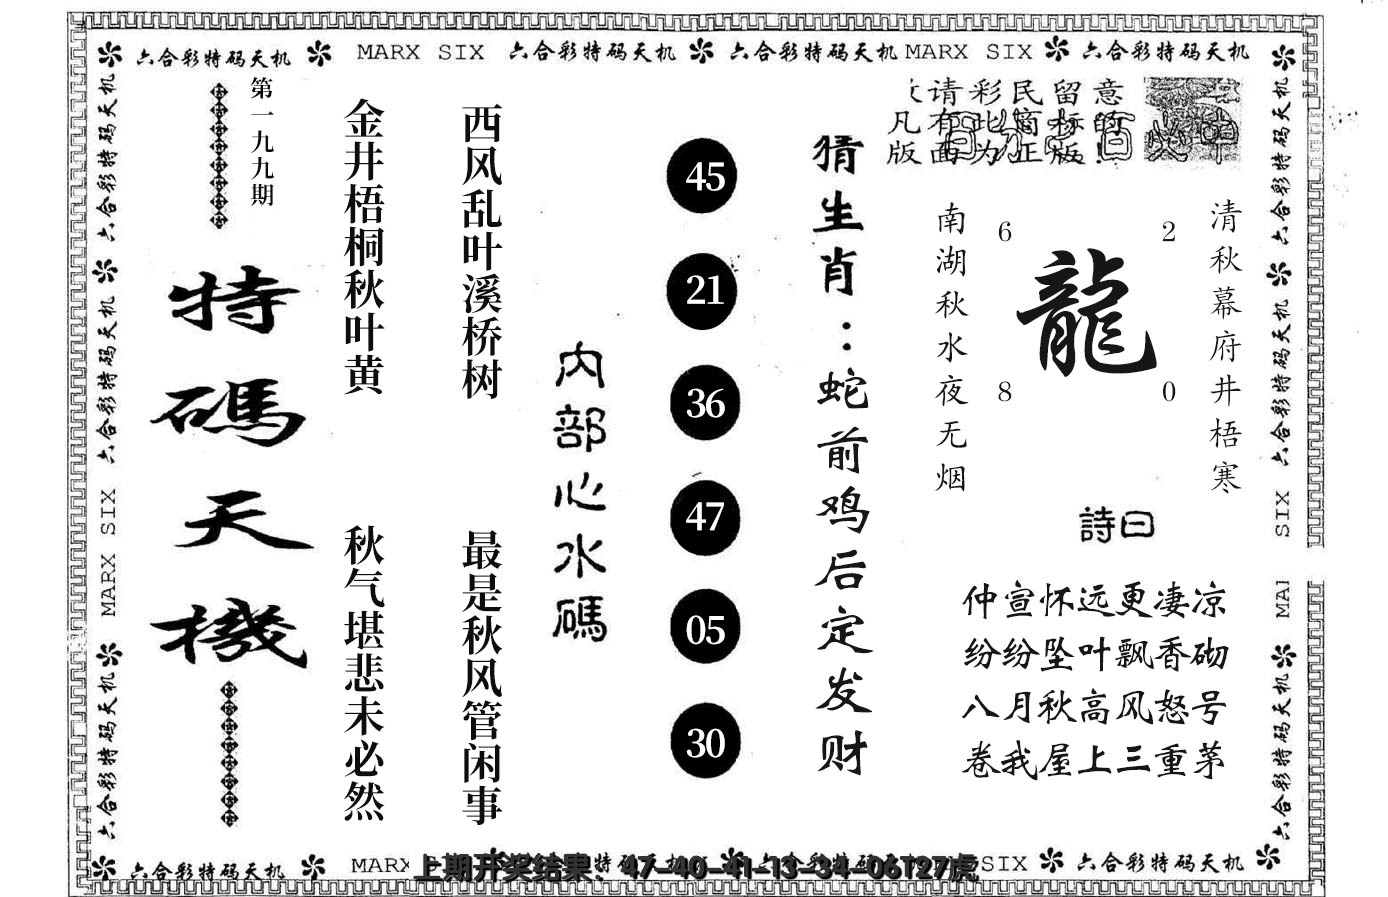 六合彩特码天机 MARX SIX 六合彩特码天机 六合彩特码天机 MARX SIX 六合彩特码天机
第一九九期
特碼天機
金井梧桐秋叶黄
秋气堪悲未必然
西风乱叶溪桥树
最是秋风管闲事
内部心水碼
45
21
36
47
05
30
猜生肖：蛇前鸡后定发财
请彩民留意
凡有此简标的
版面为正版!
清秋幕府井梧寒
南湖秋水夜无烟
6 2
龍
8 0
詩曰
仲宣怀远更凄凉
纷纷坠叶飘香砌
八月秋高风怒号
卷我屋上三重茅
六合彩特码天机 MARX SIX 六合彩特码天机 六合彩特码天机
六合彩特码天机 六合彩特码天机 SIX 六合彩特码天机
六合彩特码天机 MARX SIX 六合彩特码天机
上期开奖结果：47-40-41-13-34-06T27虎